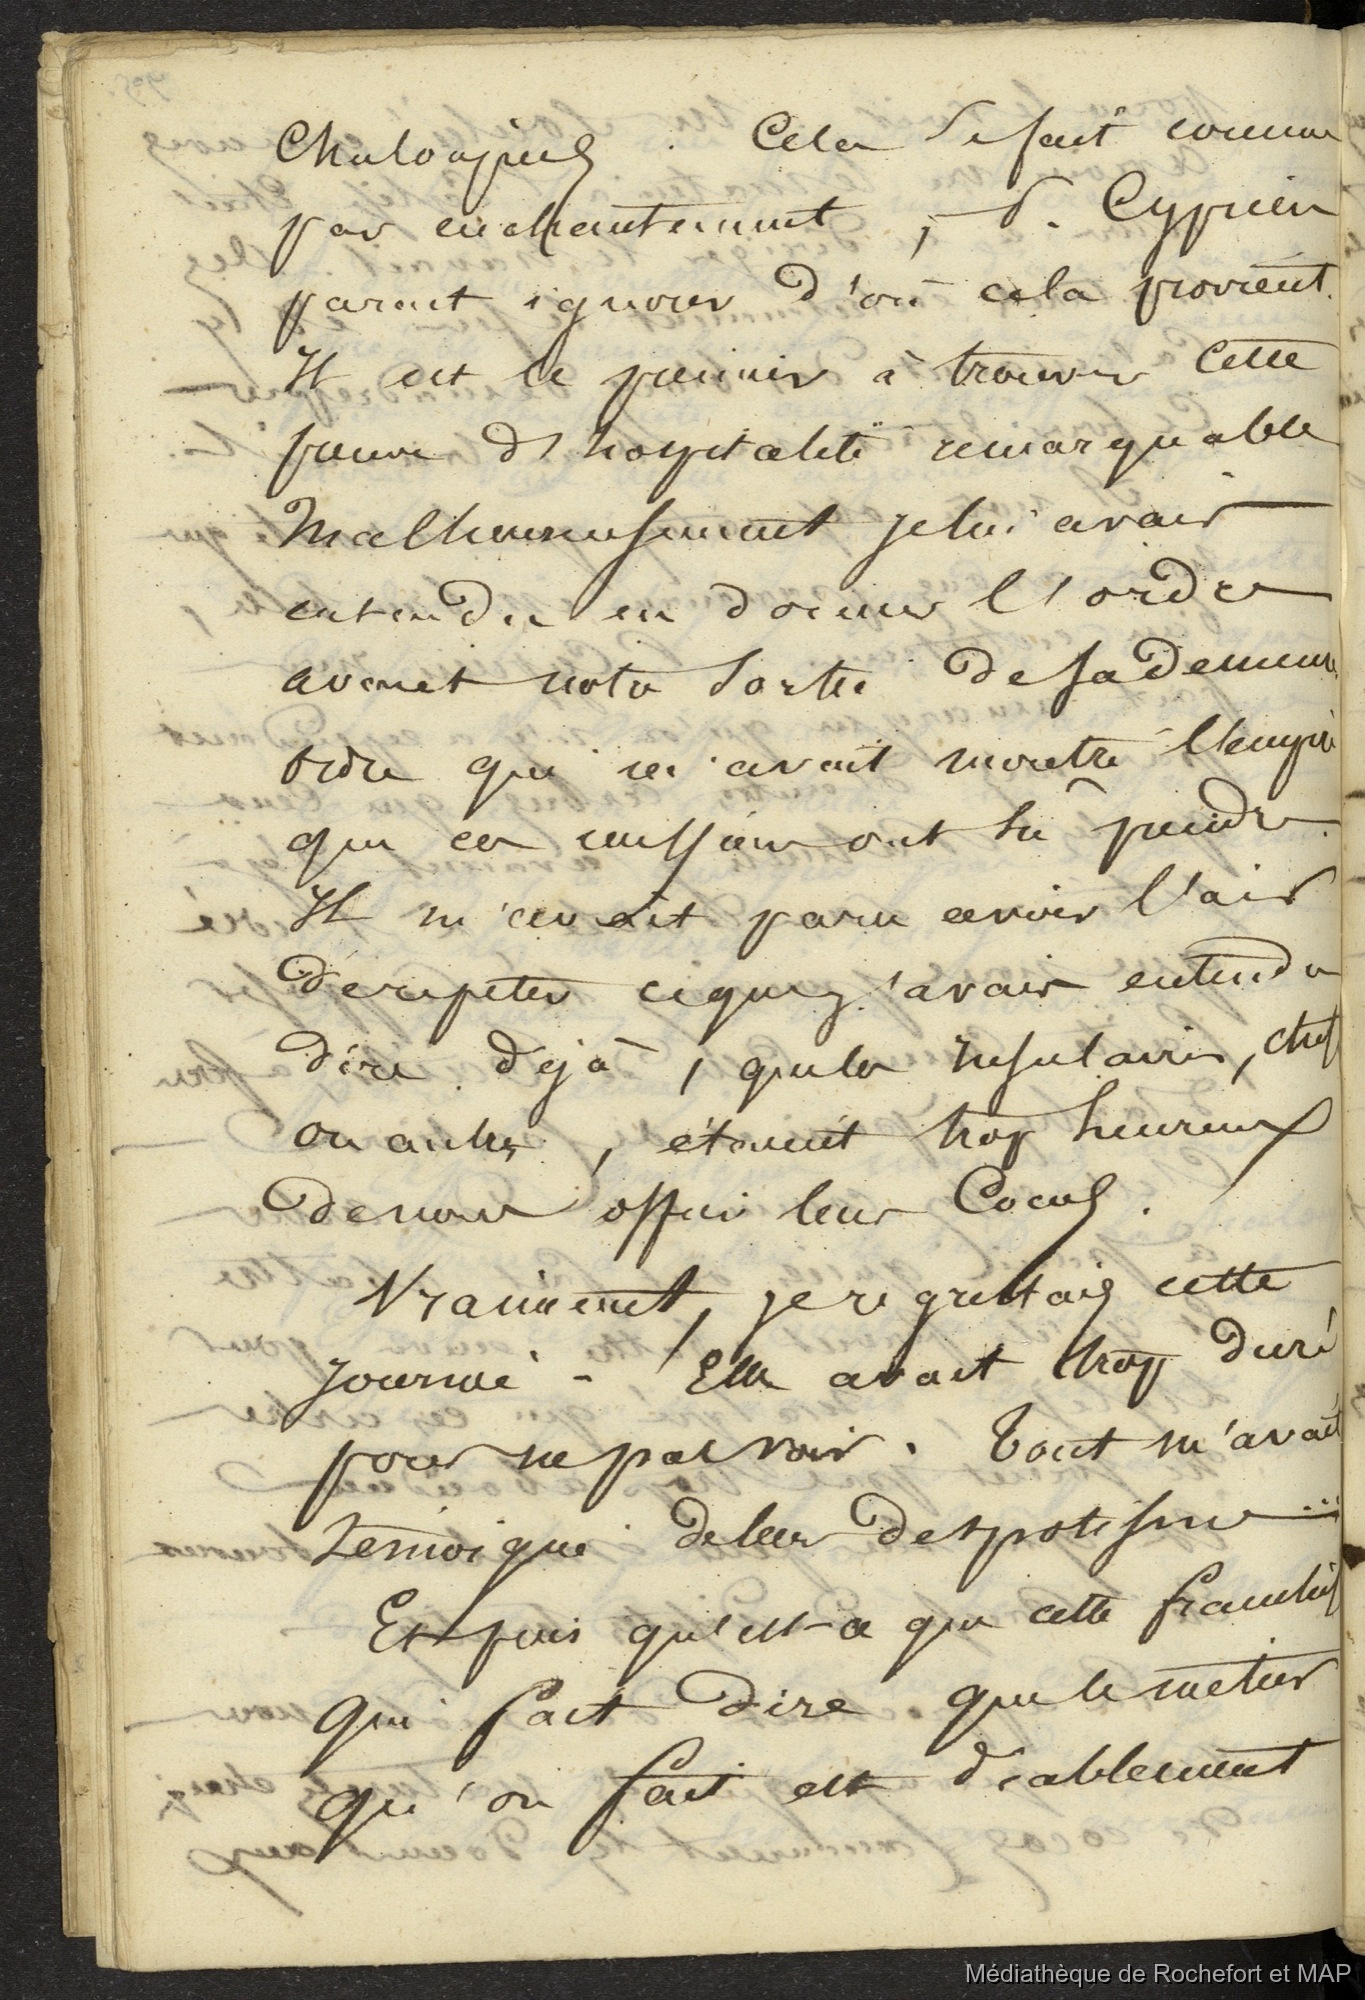 Chaloupies. Cela se fait comme
par enchantement, S. Cyprien
parait ignorer d'où cela provient.
Il est le premier à trouver cette
preuve d'hospitalité remarquable
Malheureusement je lui avais
entendu en donner l'ordre
avant notre sortie de sa demeure
ordre qui m'avait montré l'empire
que ces messieurs ont su prendre.
Il m'avait paru avoir l'air
de repeter ce que j'avais entendu
dire déjà, que les insulaires, chefs
ou autres, étaient trop heureux
de nous offrir leurs Cocos.
Vraiment, je regrettais cette
journée - Elle avait trop duré
pour ne pas voir. Tout m'avait
temoigné de leur despotisme ...
Et puis qu'est-ce que cette franchise
qui fait dire que le metier
qu'on fait est diablement
Médiathèque de Rochefort et MAP